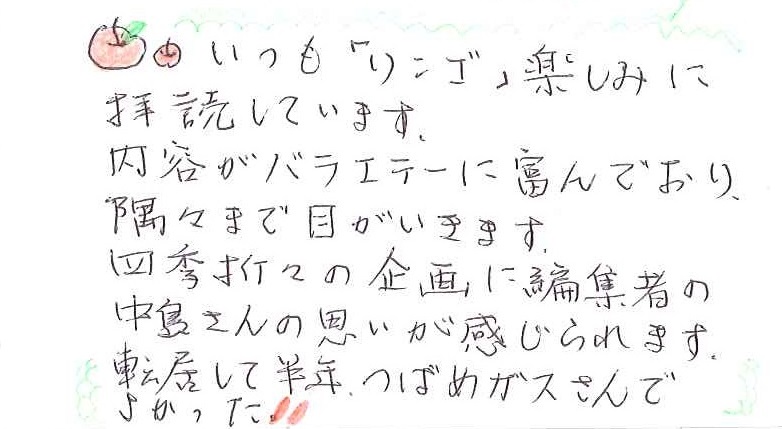 いつも「りンゴ」楽しみに
拝読しています。
内容がバラエテーに富んでおり、
隅々まで目がいきます。
四季折々の企画に編集者の
中島さんの思いが感じられます。
転居して半年、つばめガスさんで
よかった!!